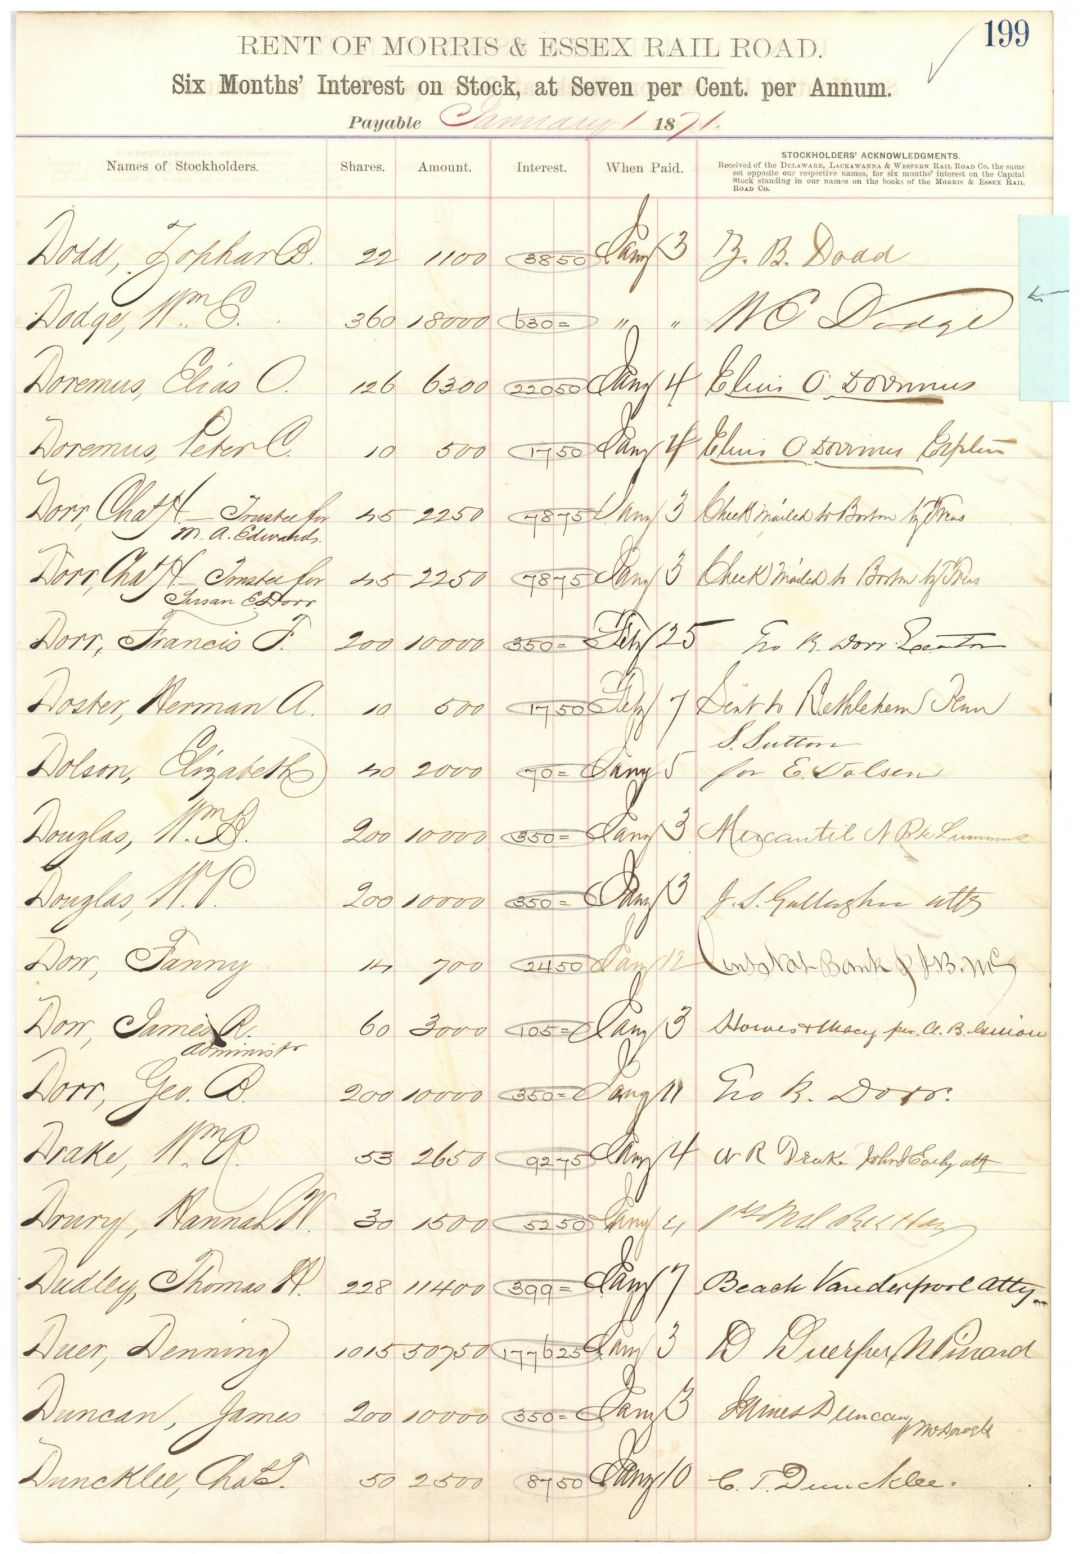 199
RENT OF MORRIS & ESSEX RAIL ROAD.
Six Months' Interest on Stock, at Seven per Cent. per Annum.
Payable January 1 1871.
Names of Stockholders. Shares. Amount. Interest. When Paid. STOCKHOLDERS' ACKNOWLEDGMENTS.
Received of the DELAWARE, LACKAWANNA & WESTERN RAIL ROAD CO. the sums
set opposite our respective names, for six months' interest on the Capital
Stock standing in our names on the books of the MORRIS & ESSEX RAIL
ROAD CO.
Dodd, Zophar B. 22 1100 38 50 Jany 3 Z. B. Dodd
Dodge, Wm. E. 360 18000 630= " " W E Dodge
Doremus, Elias O. 126 6300 220 50 Jany 4 Elias O Doremus
Doremus, Peter C. 10 500 17 50 Jany 4 Elias O Doremus
Dorr, Chas H - Trustee for 45 2250 78 75 Jany 3 Check mailed to Boston by Treas
M. A. Edwards.
Dorr, Chas H - Trustee for 45 2250 78 75 Jany 3 Check mailed to Boston by Treas
Susan E Dorr
Dorr, Francis F. 200 10000 350= Feby 25 Geo B. Dorr Executor
Doster, Herman A. 10 500 17 50 Feby 7 Sent to Bethlehem Penn
S. Sutton
Dolson, Elizabeth 40 2000 70= Jany 5 for E. Dolsen
Douglas, Wm. B. 200 10000 350= Jany 3 Mercantil N Bk
Douglas, W. P. 200 10000 350= Jany 3 J. S. Gallagher atty
Dow, Fanny 14 700 24 50 Jany 12 Cent Nat Bank
Dow, James R. 60 3000 105= Jany 3 Howes & Macy per A. B.
Administr
Dorr, Geo. B. 200 10000 350= Jany 11 Geo B. Dorr.
Drake, Wm R. 53 2650 92 75 Jany 4 W R Drake John atty
Drury, Hannah W. 30 1500 52 50 Jany 4
Dudley, Thomas H. 228 11400 399= Jany 7 Beach Vanderpool atty
Duer, Denning 1015 50750 1776 25 Jany 3 D Duer per W Pinard
Duncan, James 200 10000 350= Jany 3 James Duncan
Duncklee, Chas T. 50 2500 87 50 Jany 10 C. T. Duncklee.